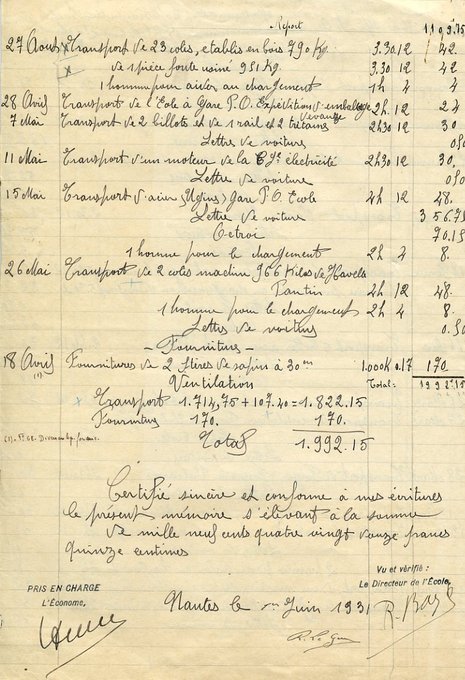 Report 1109.75
27 Aout Transport de 23 coles, etables en bois 790 kg 3.30 12 42.
de 1 pièce fonte usiné 951 Kg 3.30 12 42
1 homme pour aider au chargement 1h 4 4
28 Avril Transport de l'Ecole à Gare P.O. Expéditions d'emballage 2h. 12 24
7 Mai Transport de 2 billots et de 1 rail et 2 tretaux 2h30 12 30
Lettre de voiture 0.50
11 Mai Transport d'un moteur de la Cie électricité 2h30 12 30.
Lettre de voiture 0.50
15 Mai Transport d'acier (Ugine) Gare P.O. Ecole 4h 12 48.
Lettre de voiture 356.75
Octroi 70.15
1 homme pour le chargement 2h 4 8.
26 Mai Transport de 2 coles machine 966 Kilos de
Pantin 4h 12 48.
1 homme pour le chargement 2h 4 8.
Lettres de voiture 0.50
- Fournitures -
18 Avril Fournitures de 2 stères de sapin à 30 1.000K 0.17 170.
(1) Ventilation Total: 1992.15
Transport 1.714,75 + 107.40 = 1.822.15
Fournitures 170. 170.
Total 1.992.15
Certifié sincère et conforme à mes écritures
le présent mémoire s'élevant à la somme
de mille neuf cents quatre vingt douze francs
quinze centimes
Vu et vérifié :
PRIS EN CHARGE Le Directeur de l'École,
L'Économe,
Nantes le 1er Juin 1931